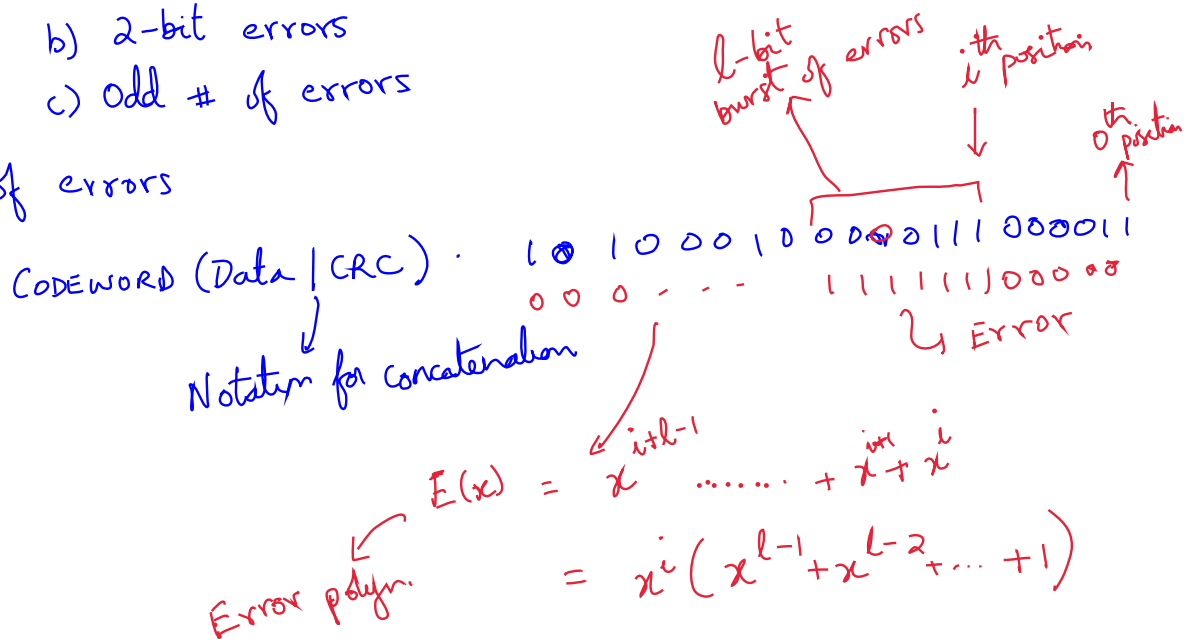 b) 2-bit errors
c) Odd # of errors
of errors
l-bit
burst of errors
ith position
0th position
CODEWORD (Data | CRC) .
1 0 1 0 0 0 1 0 0 0 0 0 1 1 1 0 0 0 0 1 1
0 0 0 - - - 1 1 1 1 1 1 1 0 0 0 0 0
Error
Notatin for concatenation
E(x) = x^{i+l-1} ........ + x^{i+1} + x^i
= x^i (x^{l-1} + x^{l-2} + ... + 1)
Error polyn.